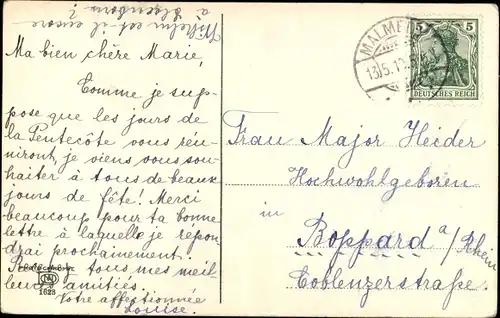 Wilhelm est il encore
à Ingenbom ?
Ma bien chère Marie,
Comme je sup-
pose que les jours de
la Pentecôte vous réu-
niront, je viens vous sou-
haiter à tous de beaux
jours de fête! Merci
beaucoup pour ta bonne
lettre à laquelle je répon
drai prochainement.
à tous mes meil
leurs amitiés.
Votre affectionnée
Louise.
1623
MALME
13/5.1
5 5
DEUTSCHES REICH
Frau Major Heider
Hochwohlgeboren
in
Boppard a/Rhein
Coblenzerstraße.